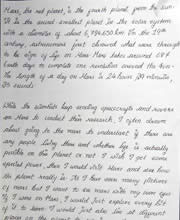 Mars, the red planet, is the fourth planet from the sun.
It is the second smallest planet in the solar system
with a diameter of about 6,794,650 km. In the 19th
century, astronomers first observed what were through
to be sign of life on Mars. Mars takes around 687
Earth days to complete one revolution around the sun.
The length of a day on Mars is 24 hours, 39 minutes,
35 seconds.
While the scientists keep sending spacecrafts and rovers
on Mars to conduct their research, I often dream
about going to the mars to understand if there are
any people living there and whether life is actually
possible on the planet or not. I wish I get some
special power, then I would visit Mars and see how
the planet really is. As I have seen many pictures
of mars but I want to see mars with my own eyes.
If I were on Mars, I would just explore every bit
of it to learn. I would just also live at different